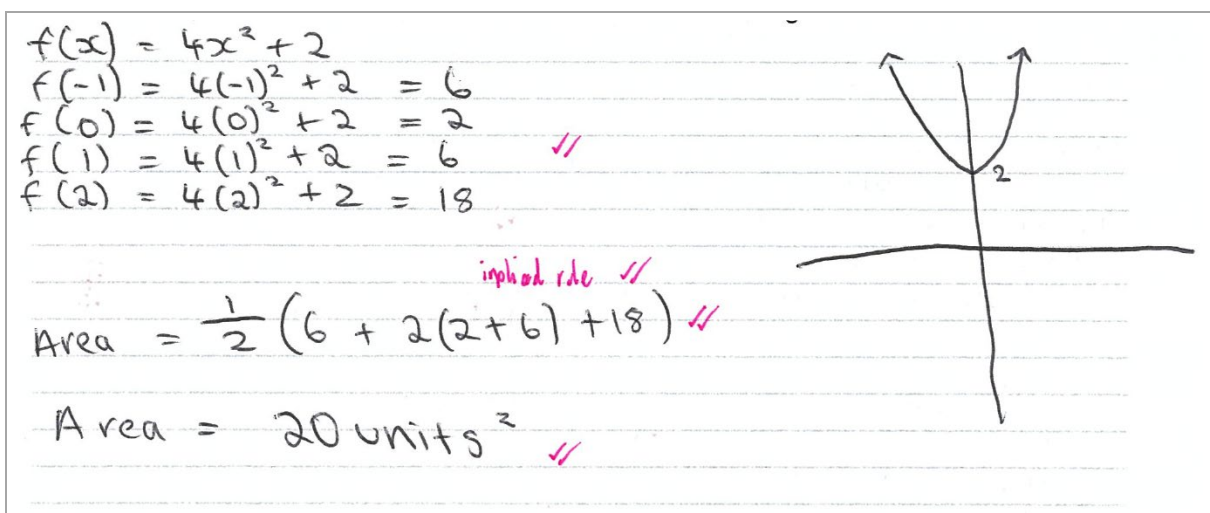 f(x) = 4x² + 2
f(-1) = 4(-1)² + 2 = 6
f(0) = 4(0)² + 2 = 2
f(1) = 4(1)² + 2 = 6
f(2) = 4(2)² + 2 = 18
2
implied rule
Area = 1/2 (6 + 2(2+6) + 18)
Area = 20 units²